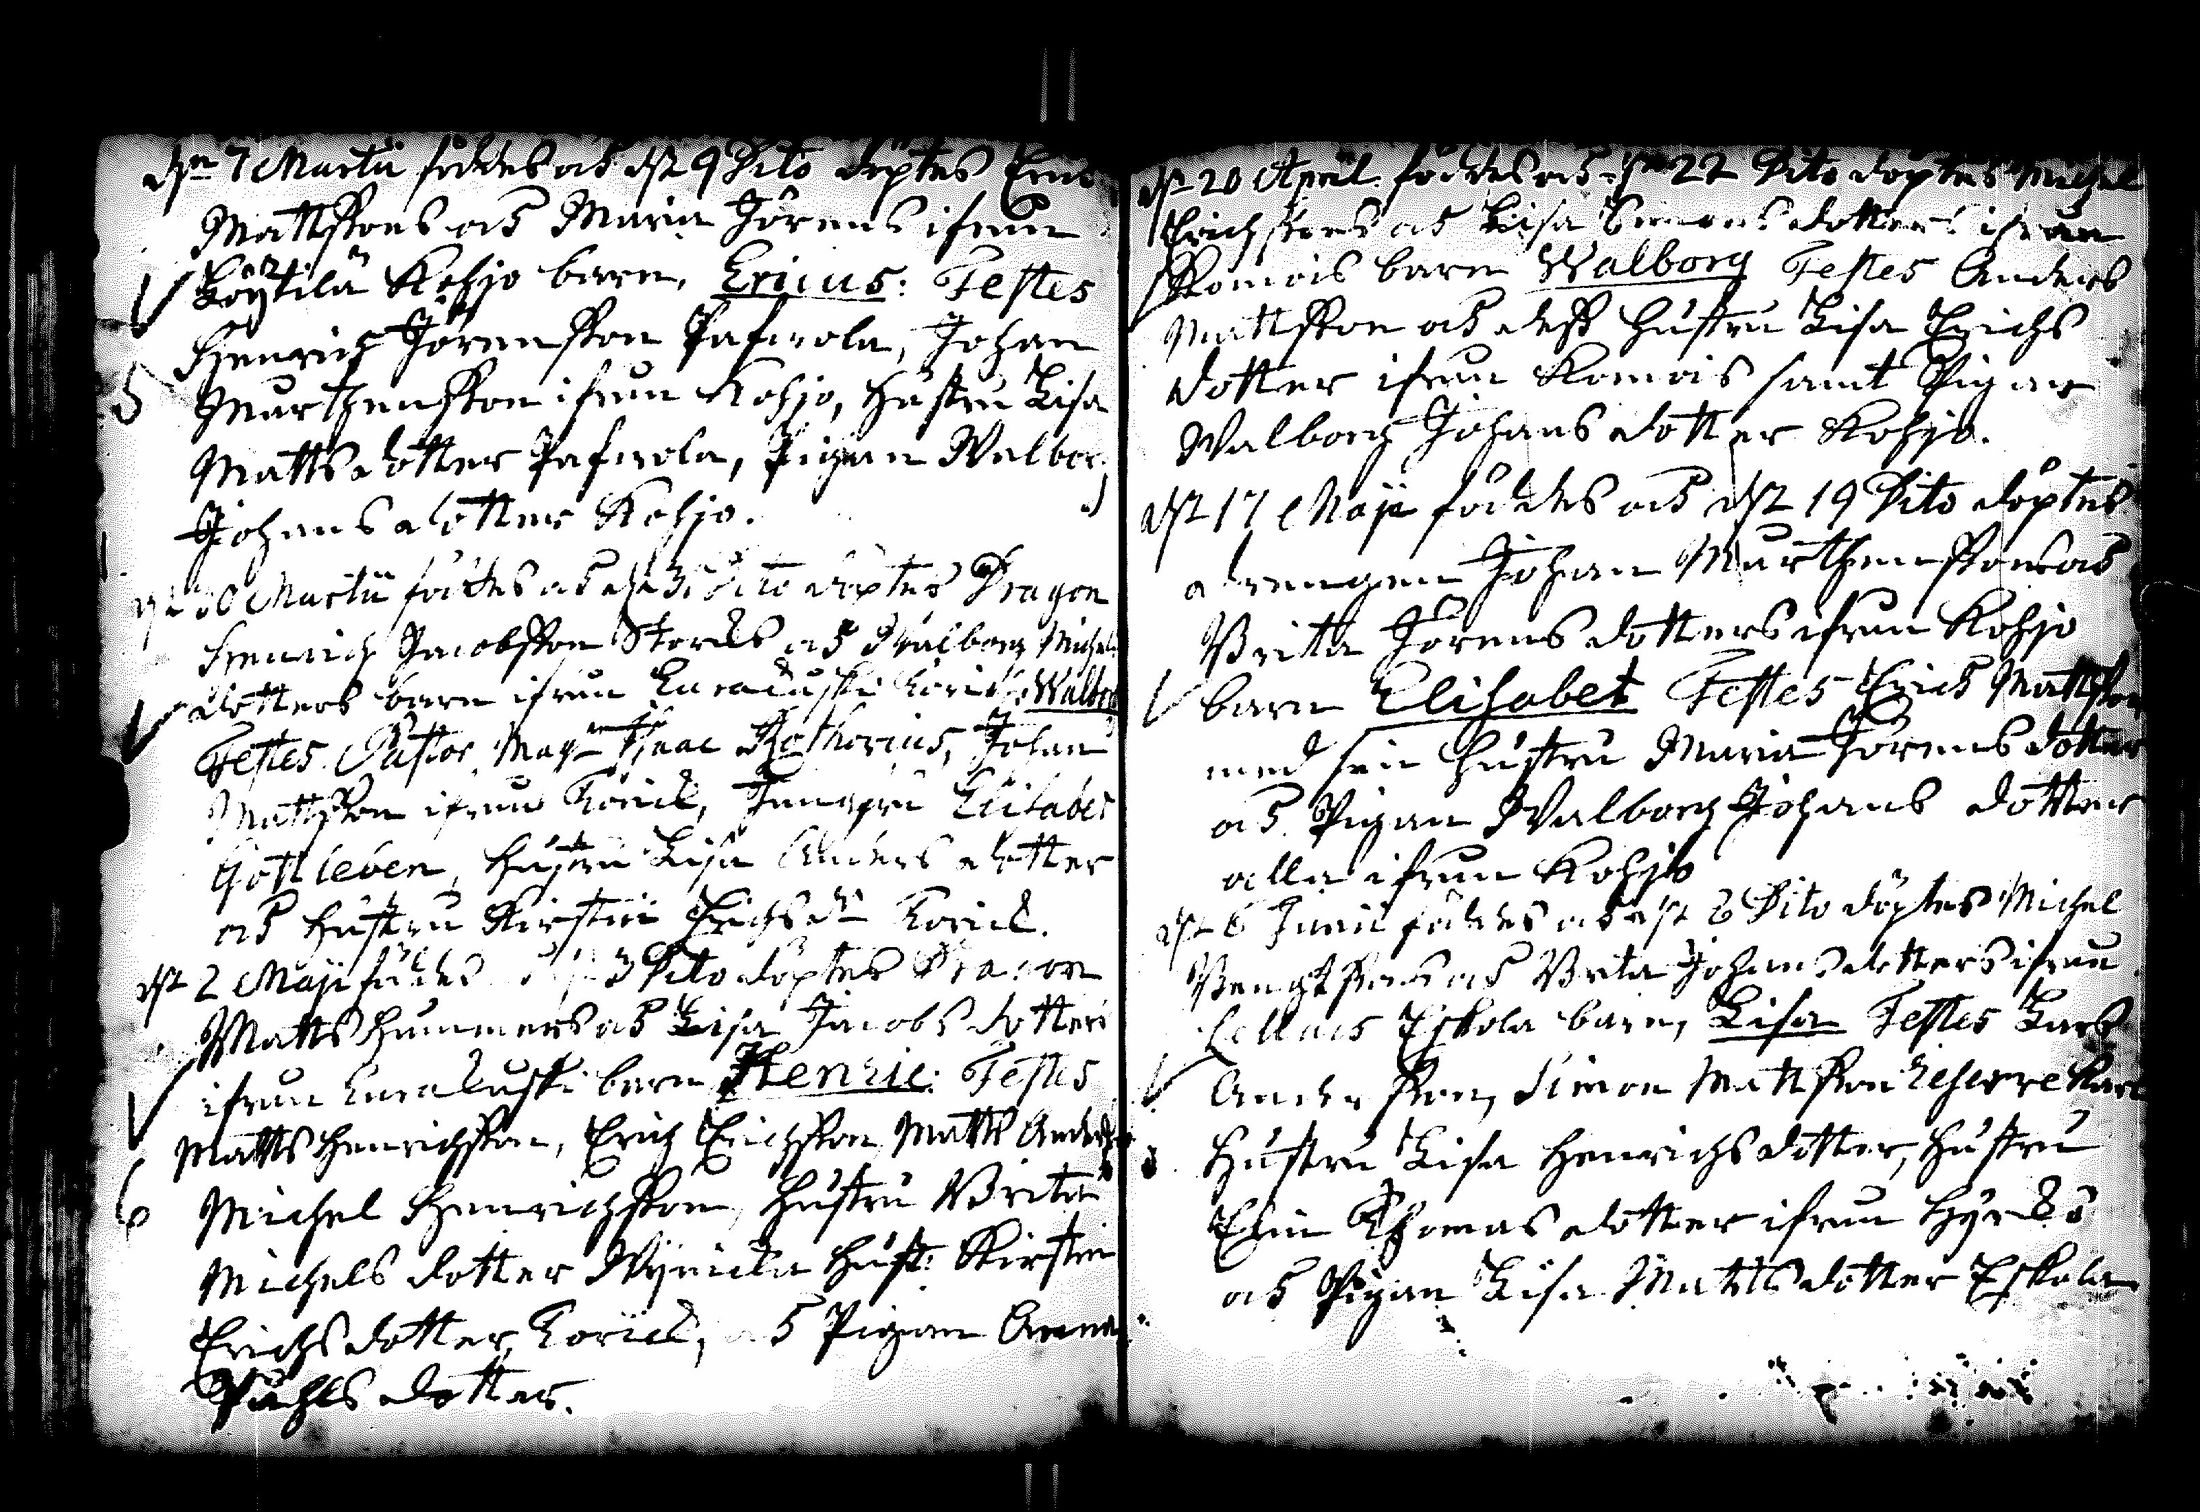 dn 7 Martii föddes och dn 9 Dito döptes Erich
Mattssons och Maria Jörens ifrån
Löytilä Kohjo barn, Ericus: Testes
Henrich Jörensson Pafvola, Johan
Marthensson ifrån Kohjo, Hustru Lisa
5
Mattsdotter Pafvola, Pigan Walborg
Johans dotter Kohjo.
dn 30 Martii föddes och dn 31 Dito döptes Dragon
Henrich Jacobsson Storcks och Walborg Michels
dotters barn ifrån Walborg
Testes Pastor Mag: Isaac Rothovius, Johan
Mattsson ifrån Jungfru Elisabet
Gottleben, Hustru Lisa Anders dotter
och Hustru Kirstin Erichs dn
dn 2 Maji föddes dn 3 Dito döptes Dragon
Matts Hummers och Lisa Jacobs dotters
ifrån barn Henric: Testes
Matts Henrichsson, Erich Erichsson Matts Andersson
6
Michel Henrichsson, Hustru Brita
Michels dotter Hust: Kirstin
Erichs dotter och Pigan Anna
Påhls dotter.
dn 20 April föddes och dn 22 Dito döptes Michel
Erichssons och Lisa Simons dotters ifrån
Komois barn Walborg Testes Anders
Mattsson och dess Hustru Lisa Erichs
dotter ifrån Komois samt Pigan
Walborg Johans dotter Kohjo.
dn 17 Maji föddes och dn 19 Dito döptes
drengen Johan Marthenssons och
Brita Jörens dotters ifrån Kohjo
barn Elisabet Testes Erich Mattsson
med sin Hustru Maria Jörens dotter
och Pigan Walborg Johans dotter
alla ifrån Kohjo
dn 6 Junii föddes och dn 8 Dito döptes Michel
Bengtssons och Brita Johans dotters ifrån
Eskola barn, Lisa Testes Lars
Andersson, Simon Mattsson
Hustru Lisa Henrichs dotter, Hustru
Elin Thomas dotter ifrån
och Pigan Lisa Matts dotter Eskola